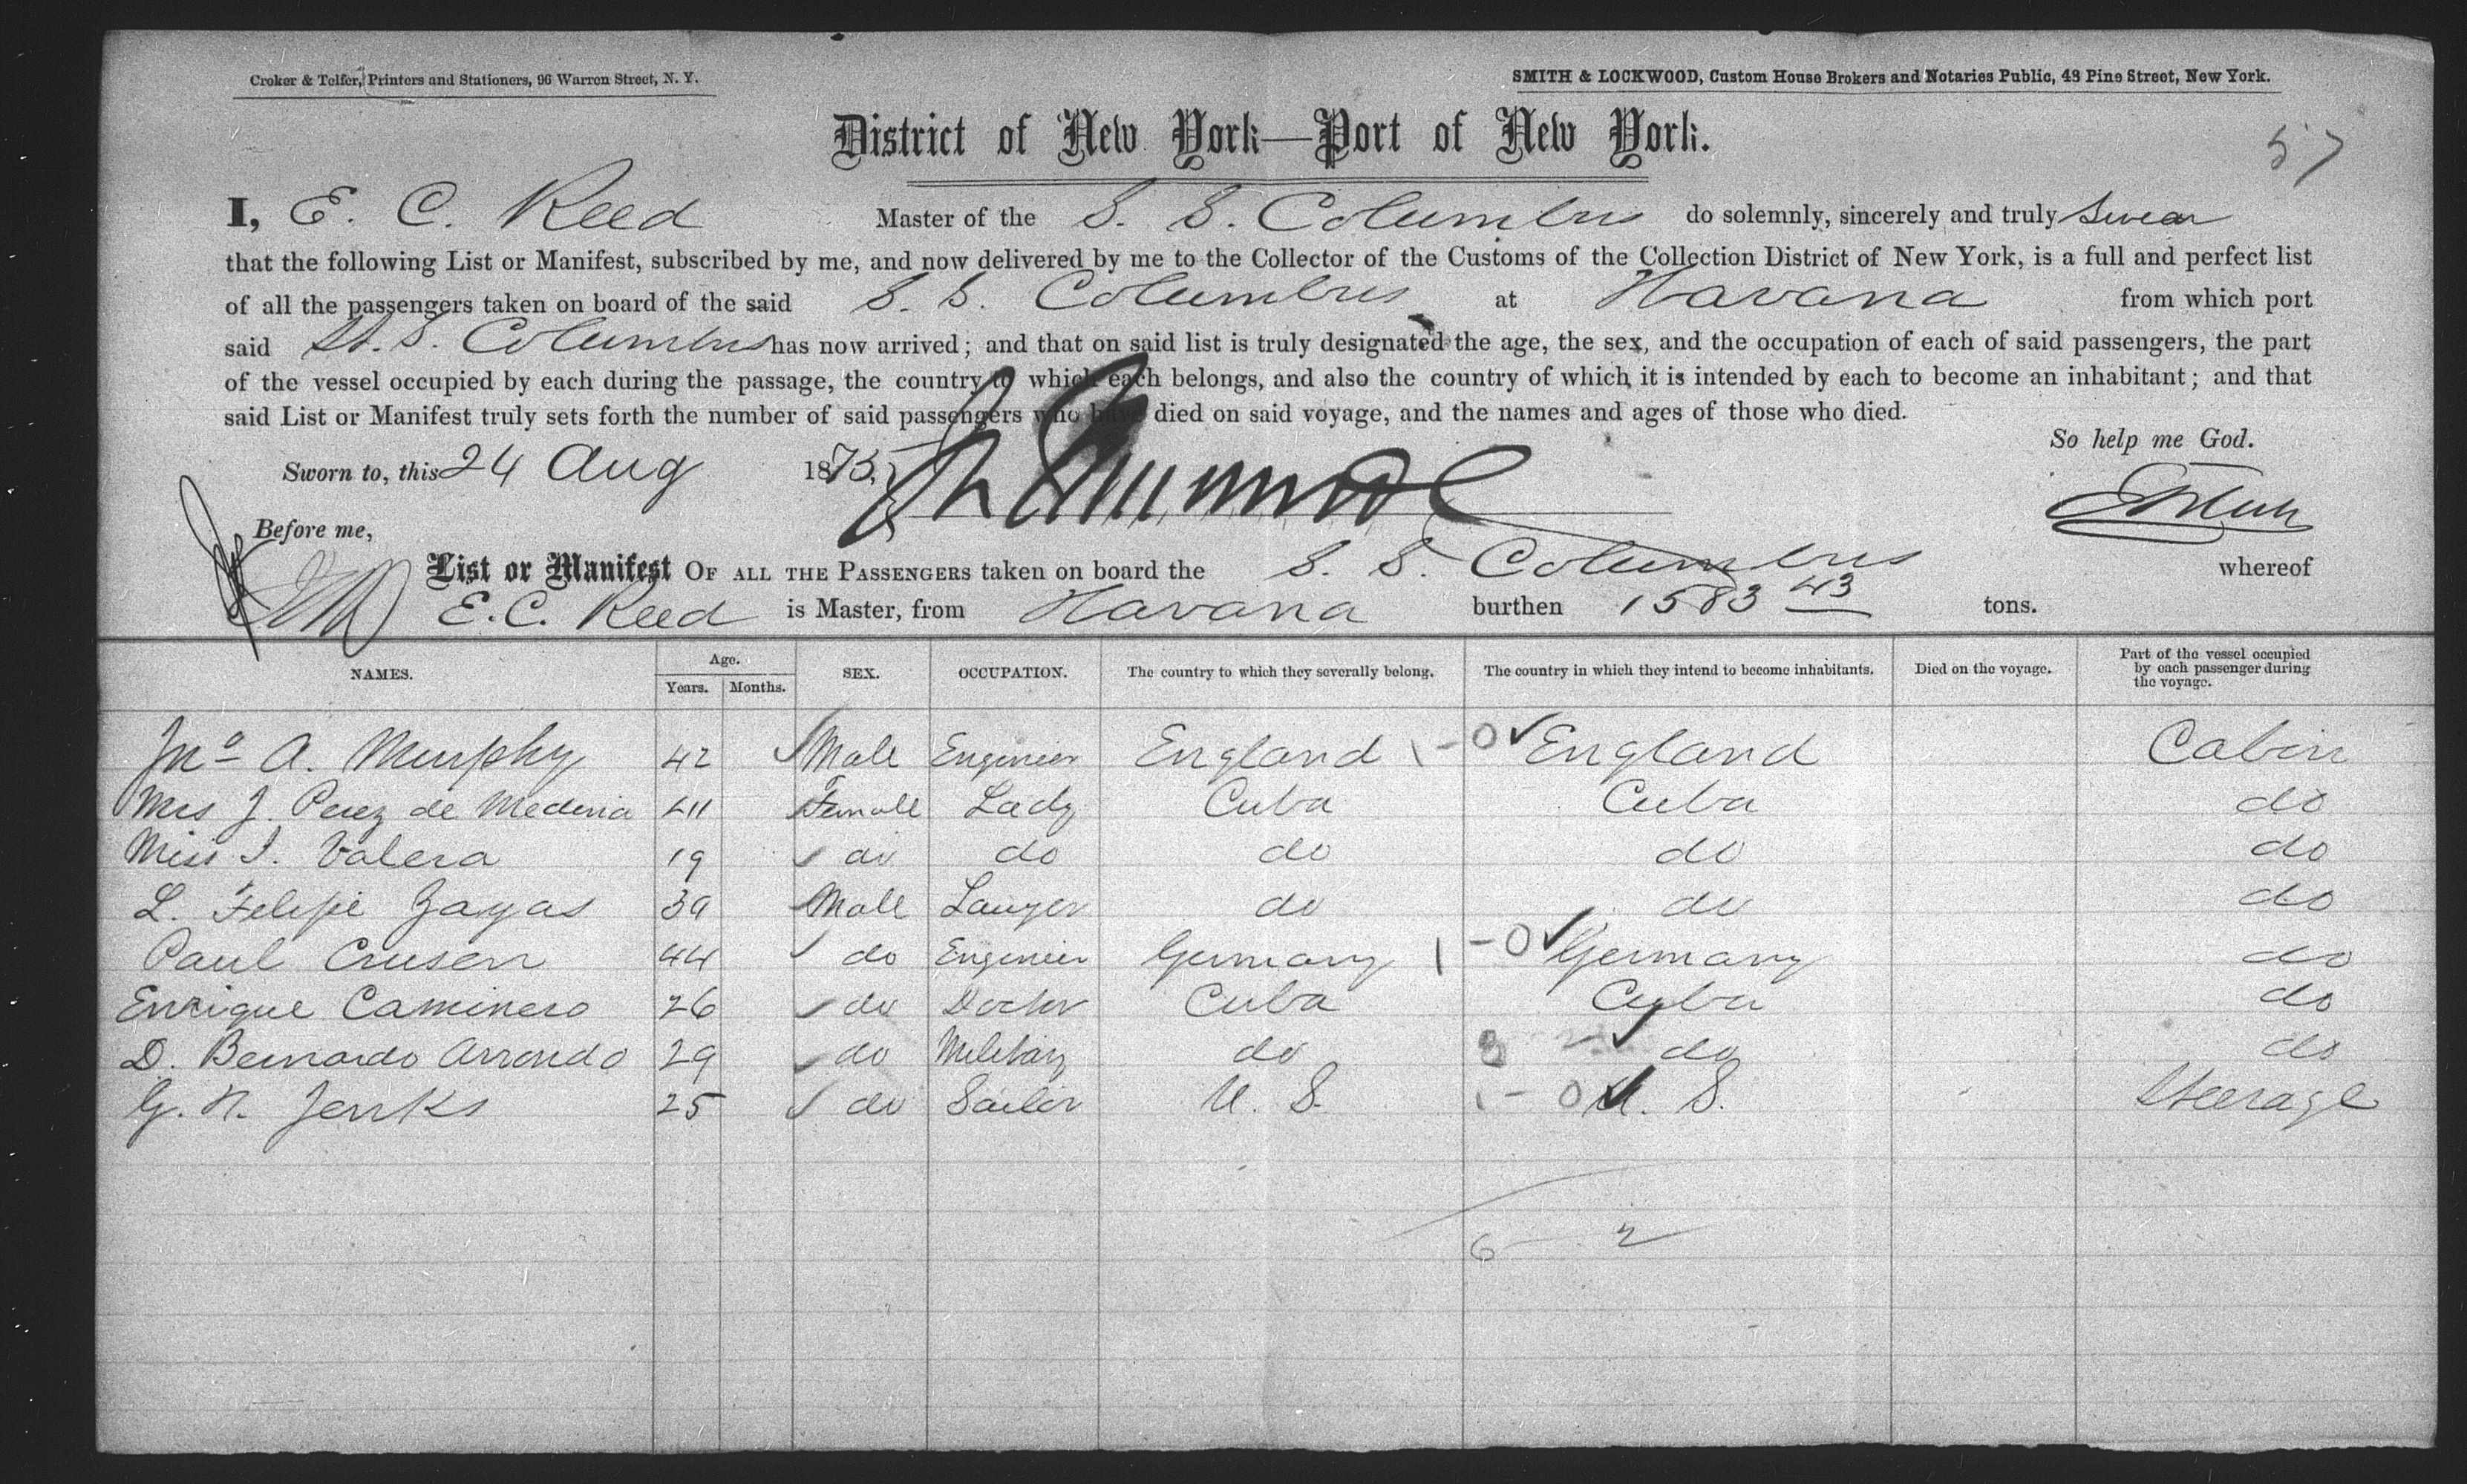 Croker & Telfer, Printers and Stationers, 96 Warren Street, N. Y.
SMITH & LOCKWOOD, Custom House Brokers and Notaries Public, 48 Pine Street, New York.
District of New York—Port of New York.
57
I, E. C. Reed Master of the S. S. Columbus do solemnly, sincerely and truly swear
that the following List or Manifest, subscribed by me, and now delivered by me to the Collector of the Customs of the Collection District of New York, is a full and perfect list
of all the passengers taken on board of the said S. S. Columbus at Havana from which port
said St. S. Columbus has now arrived; and that on said list is truly designated the age, the sex, and the occupation of each of said passengers, the part
of the vessel occupied by each during the passage, the country to which each belongs, and also the country of which it is intended by each to become an inhabitant; and that
said List or Manifest truly sets forth the number of said passengers who have died on said voyage, and the names and ages of those who died.
So help me God.
Sworn to, this 24 Aug 1875,
Before me,
List or Manifest OF ALL THE PASSENGERS taken on board the S. S. Columbus whereof
E. C. Reed is Master, from Havana burthen 1583 43 tons.
NAMES. Age. Years. Months. SEX. OCCUPATION. The country to which they severally belong. The country in which they intend to become inhabitants. Died on the voyage. Part of the vessel occupied by each passenger during the voyage.
Jno A. Murphy 42 Male Engineer England 1 - 0 England Cabin
Mrs J. Perez de Medina Female Lady Cuba Cuba do
Miss I. Valera 19 do do do do do
L. Felipe Zayas 39 Male Lawyer do do do
Paul Crusen 44 do Engineer Germany 1 - 0 Germany do
Enrique Caminero 26 do Doctor Cuba Cuba do
D. Bernardo Arrondo 29 do Military do do do
G. N. Jenks 25 do Sailor U. S. 1 - 0 U. S. Steerage
6 2